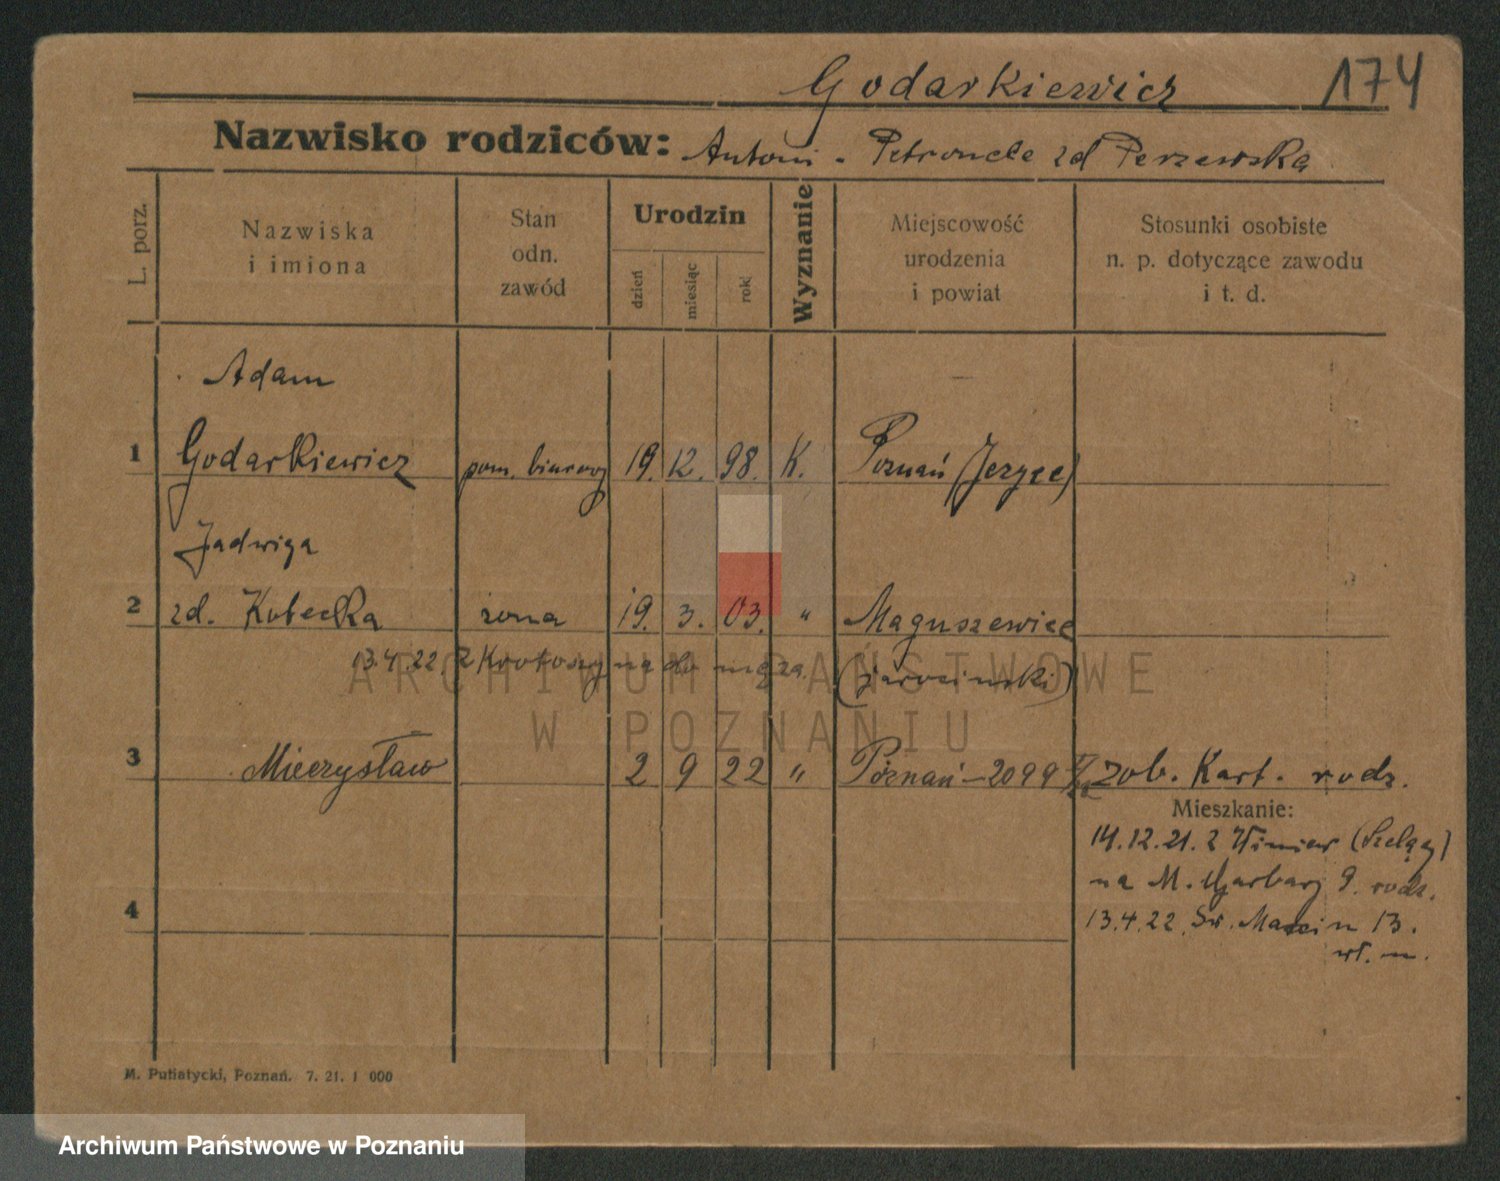 Godarkiewicz 174
Nazwisko rodziców: Antoni - Petronela zd Perzewska
L. porz.
Nazwiska
i imiona
Stan
odn.
zawód
Urodzin
dzień
miesiąc
rok
Wyznanie
Miejscowość
urodzenia
i powiat
Stosunki osobiste
n. p. dotyczące zawodu
i t. d.
Adam
1 Godarkiewicz pom. biurowy 19. 12. 98. K. Poznań (Jerzyce)
Jadwiga
2 zd. Kubecka żona 19. 3. 03. " Maguszewice
13.4.22. z Krotoszyna do męża. (jarociński)
3 Mieczysław 2 9 22 " Poznań - 2099 zob. Kart. rodz.
Mieszkanie:
14.12.21. z Winiar (Szeląg)
na M. Garbary 9. rodz.
4
13.4.22. Św. Marcin 13.
wł. m.
M. Putiatycki, Poznań. 7. 21. 1 000
ARCHIWUM PAŃSTWOWE
W POZNANIU
Archiwum Państwowe w Poznaniu